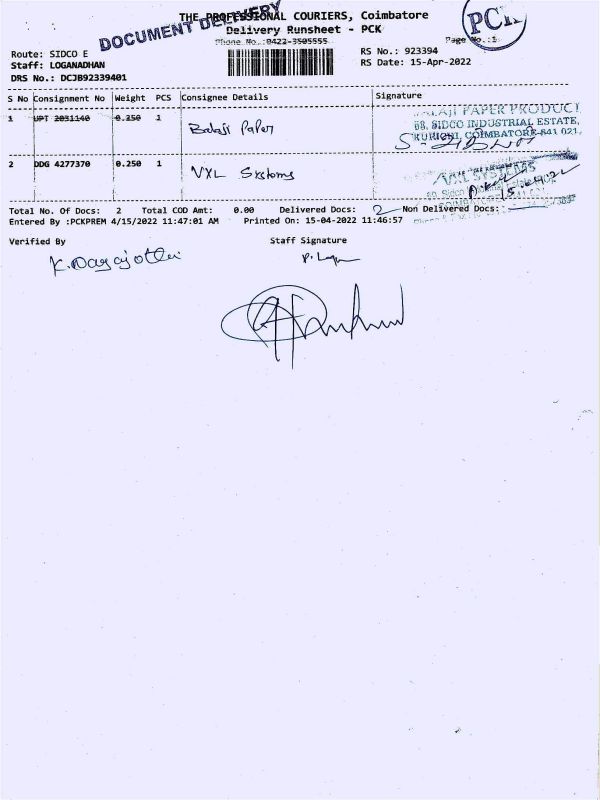 THE PROFESSIONAL COURIERS, Coimbatore
DOCUMENT DELIVERY
PCK
Delivery Runsheet - PCK
Phone No.:0422-3505555
Page No.:1
Route: SIDCO E
RS No.: 923394
Staff: LOGANADHAN
RS Date: 15-Apr-2022
DRS No.: DCJB92339401
S No Consignment No Weight PCS Consignee Details Signature
1 UPT 2031140 0.250 1 Balaji Paper
BALAJI PAPER PRODUCT
SIDCO INDUSTRIAL ESTATE,
KURICHI, COIMBATORE-641 021.
2 DDG 4277370 0.250 1 VXL Systems
VXL SYSTEMS
15.04.22
Total No. Of Docs: 2 Total COD Amt: 0.00 Delivered Docs: 2 Non Delivered Docs:
Entered By :PCKPREM 4/15/2022 11:47:01 AM Printed On: 15-04-2022 11:46:57
Verified By Staff Signature